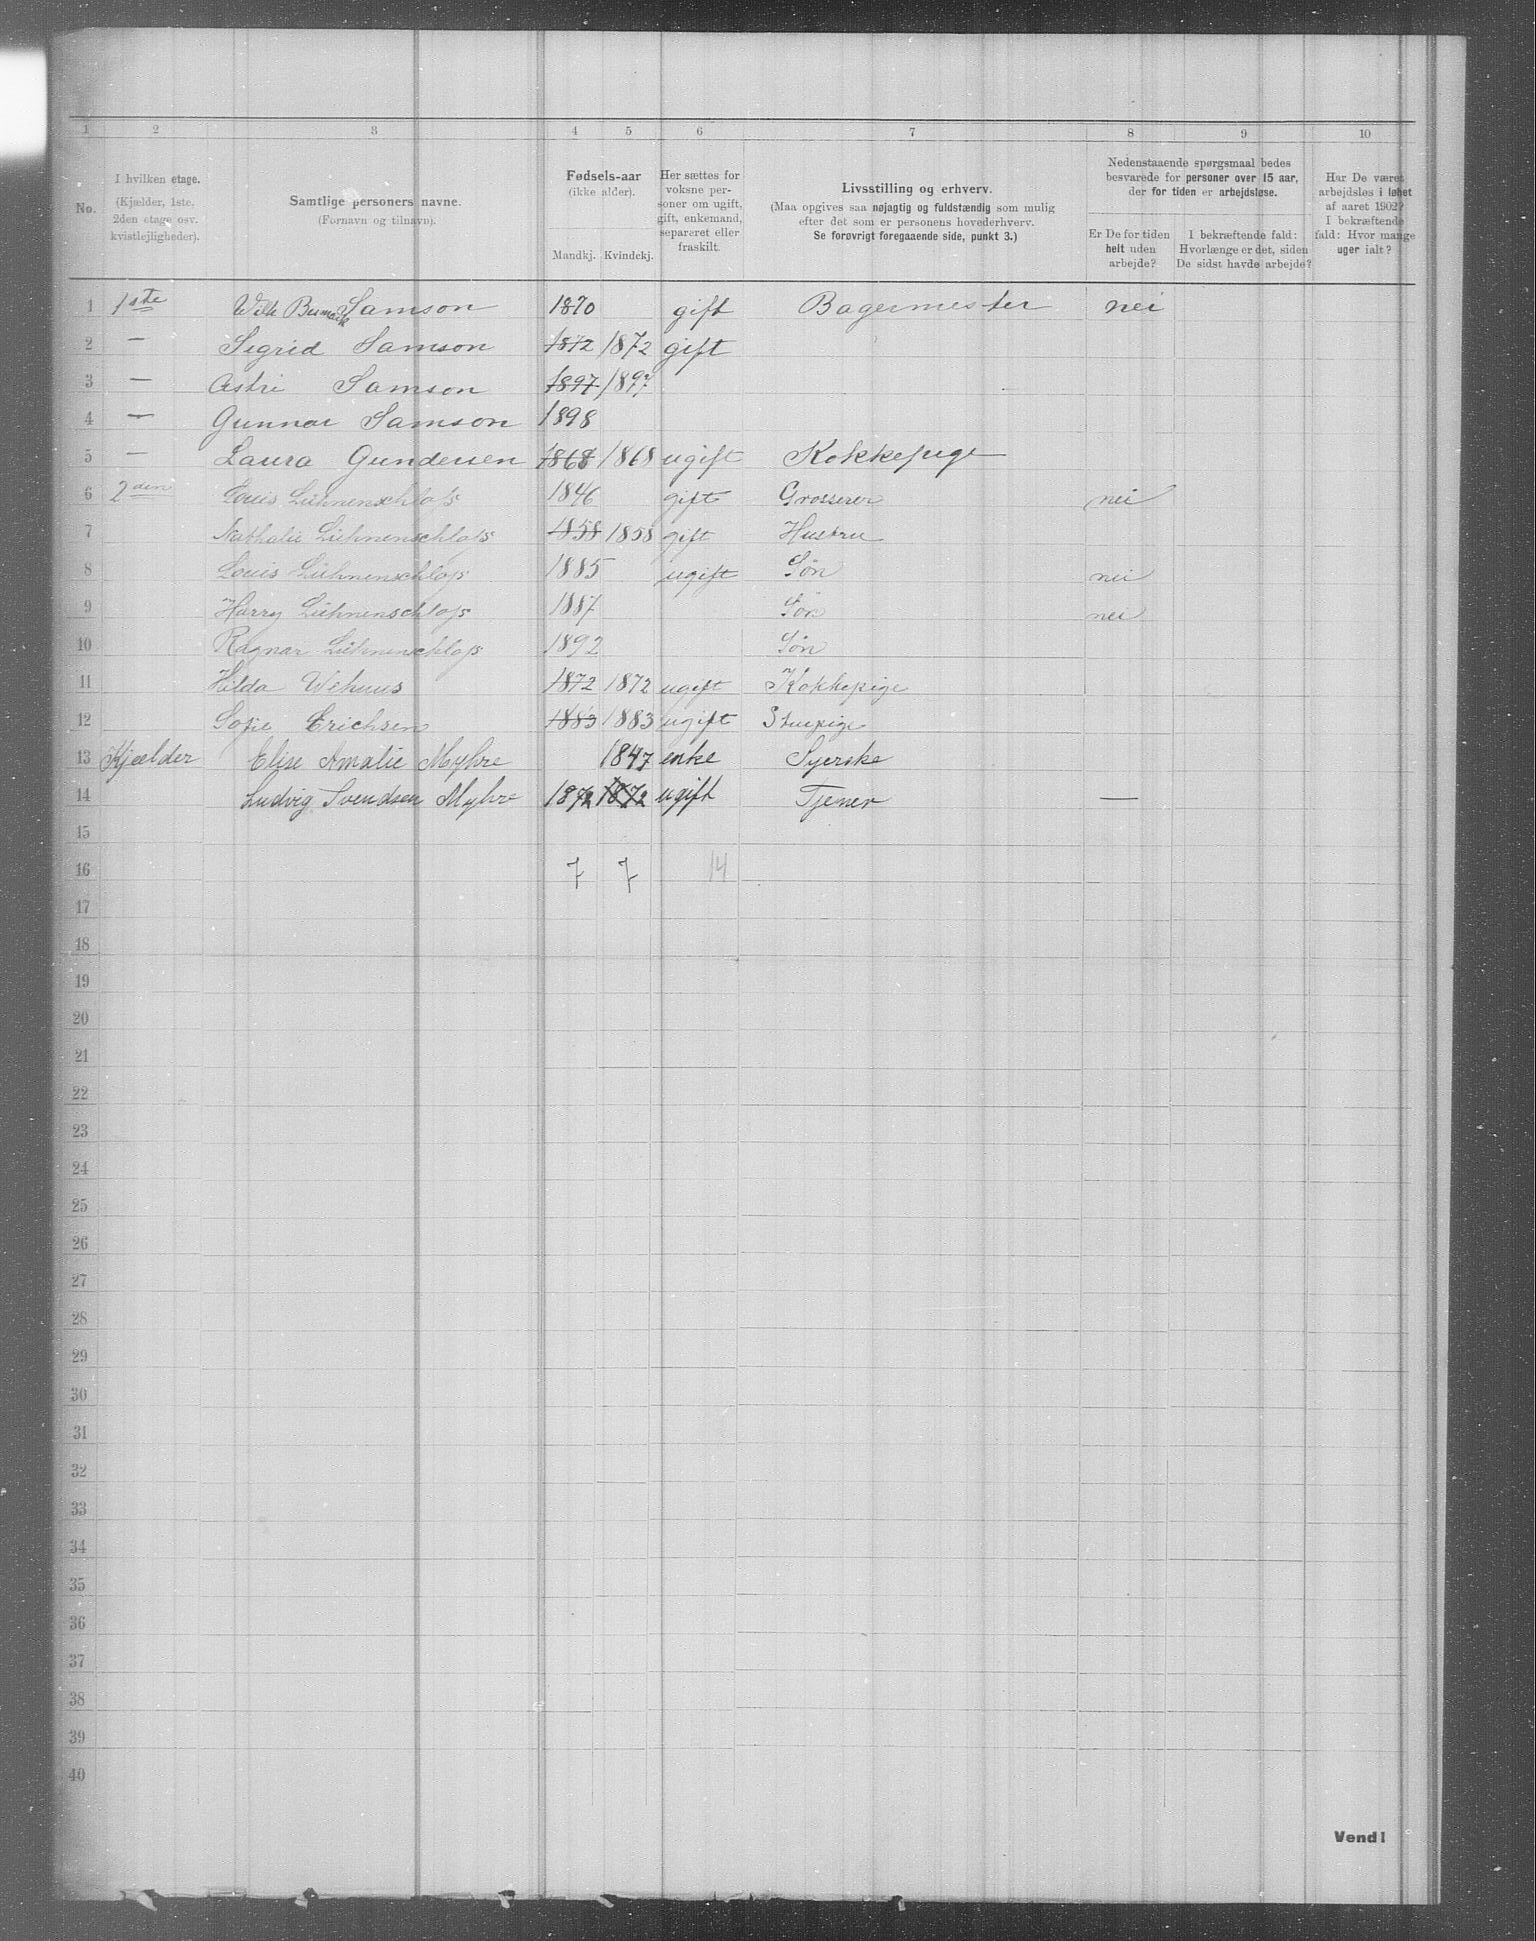 1 2 3 4 5 6 7 8 9 10
No.
I hvilken etage.
(Kjælder, 1ste,
2den etage osv.
kvistlejligheder).
Samtlige personers navne.
(Fornavn og tilnavn).
Fødsels-aar
(ikke alder).
Mandkj. Kvindekj.
Her sættes for
voksne per-
soner om ugift,
gift, enkemand,
separeret eller
fraskilt.
Livsstilling og erhverv.
(Maa opgives saa nøjagtig og fuldstændig som mulig
efter det som er personens hovederhverv.
Se forøvrigt foregaaende side, punkt 3.)
Nedenstaaende spørgsmaal bedes
besvarede for personer over 15 aar,
der for tiden er arbejdsløse.
Er De for tiden
helt uden
arbejde?
I bekræftende fald:
Hvorlænge er det, siden
De sidst havde arbejde?
Har De været
arbejdsløs i løbet
af aaret 1902?
I bekræftende
fald: Hvor mange
uger ialt?
1 1ste Wilh Bismarck Samson 1870 gift Bagermester nei
2 — Sigrid Samson 1872 1872 gift
3 — Astri Samson 1897 1897
4 — Gunnar Samson 1898
5 — Laura Gundersen 1868 1868 ugift Kokkepige
6 2den Louis Lühnenschloss 1846 gift Grosserer nei
7 Nathalie Lühnenschloss 1858 1858 gift Hustru
8 Louis Lühnenschloss 1885 ugift Søn nei
9 Harry Lühnenschloss 1887 Søn nei
10 Ragnar Lühnenschloss 1892 Søn
11 Hilda Wehuus 1872 1872 ugift Kokkepige
12 Sofie Erichsen 1883 1883 ugift Stuepige
13 Kjælder Elise Amalie Myhre 1847 enke Syerske
14 Ludvig Svendsen Myhre 1872 1872 ugift Tjener —
15
16 7 7 14
17
18
19
20
21
22
23
24
25
26
27
28
29
30
31
32
33
34
35
36
37
38
39
40
Vend!